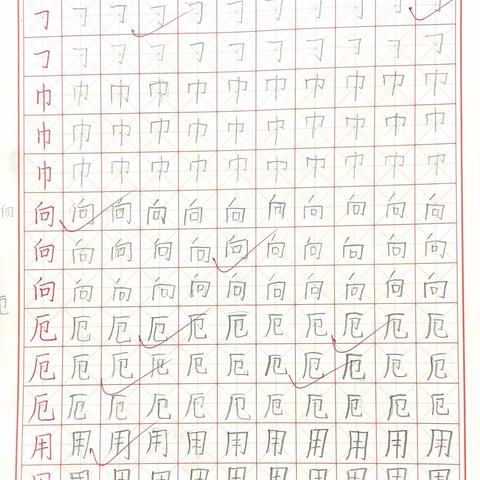 刁刁刁刁刁刁刁刁刁刁刁
刁刁刁刁刁刁刁刁刁刁刁
巾巾巾巾巾巾巾巾巾巾巾
巾巾巾巾巾巾巾巾巾巾巾
巾巾巾巾巾巾巾巾巾巾巾
向向向向向向向向向向向
向向向向向向向向向向向
向向向向向向向向向向向
厄厄厄厄厄厄厄厄厄厄厄
厄厄厄厄厄厄厄厄厄厄厄
厄厄厄厄厄厄厄厄厄厄厄
用用用用用用用用用用用